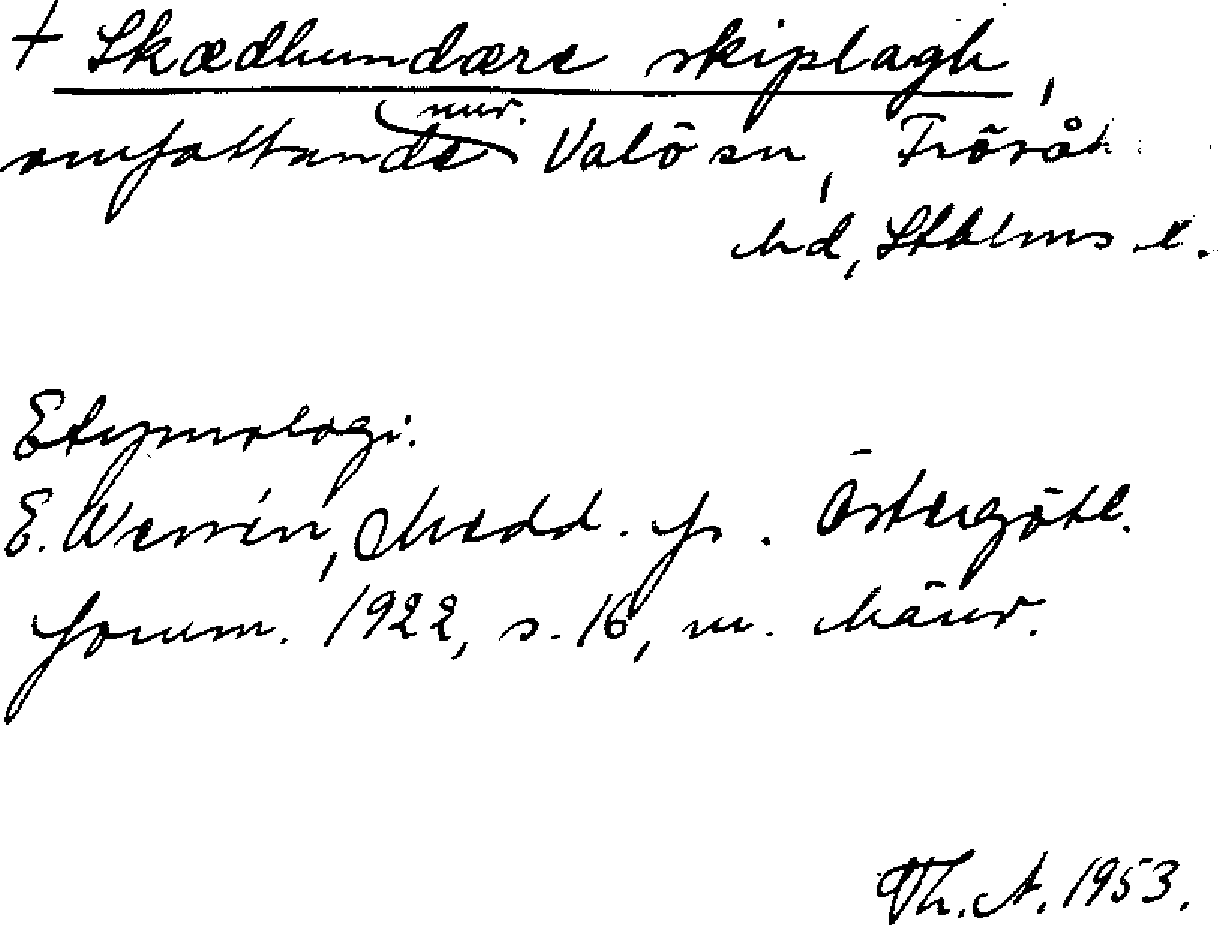 + Skædhundære skiplagh,
omfattande nuv. Valö sn, Frösåk
hd, Sthlms l.
Etymologi.
E. Wessén, Medd. fr. Östergötl.
fornm. 1922, s. 16, m. hänv.
Th. A. 1953.